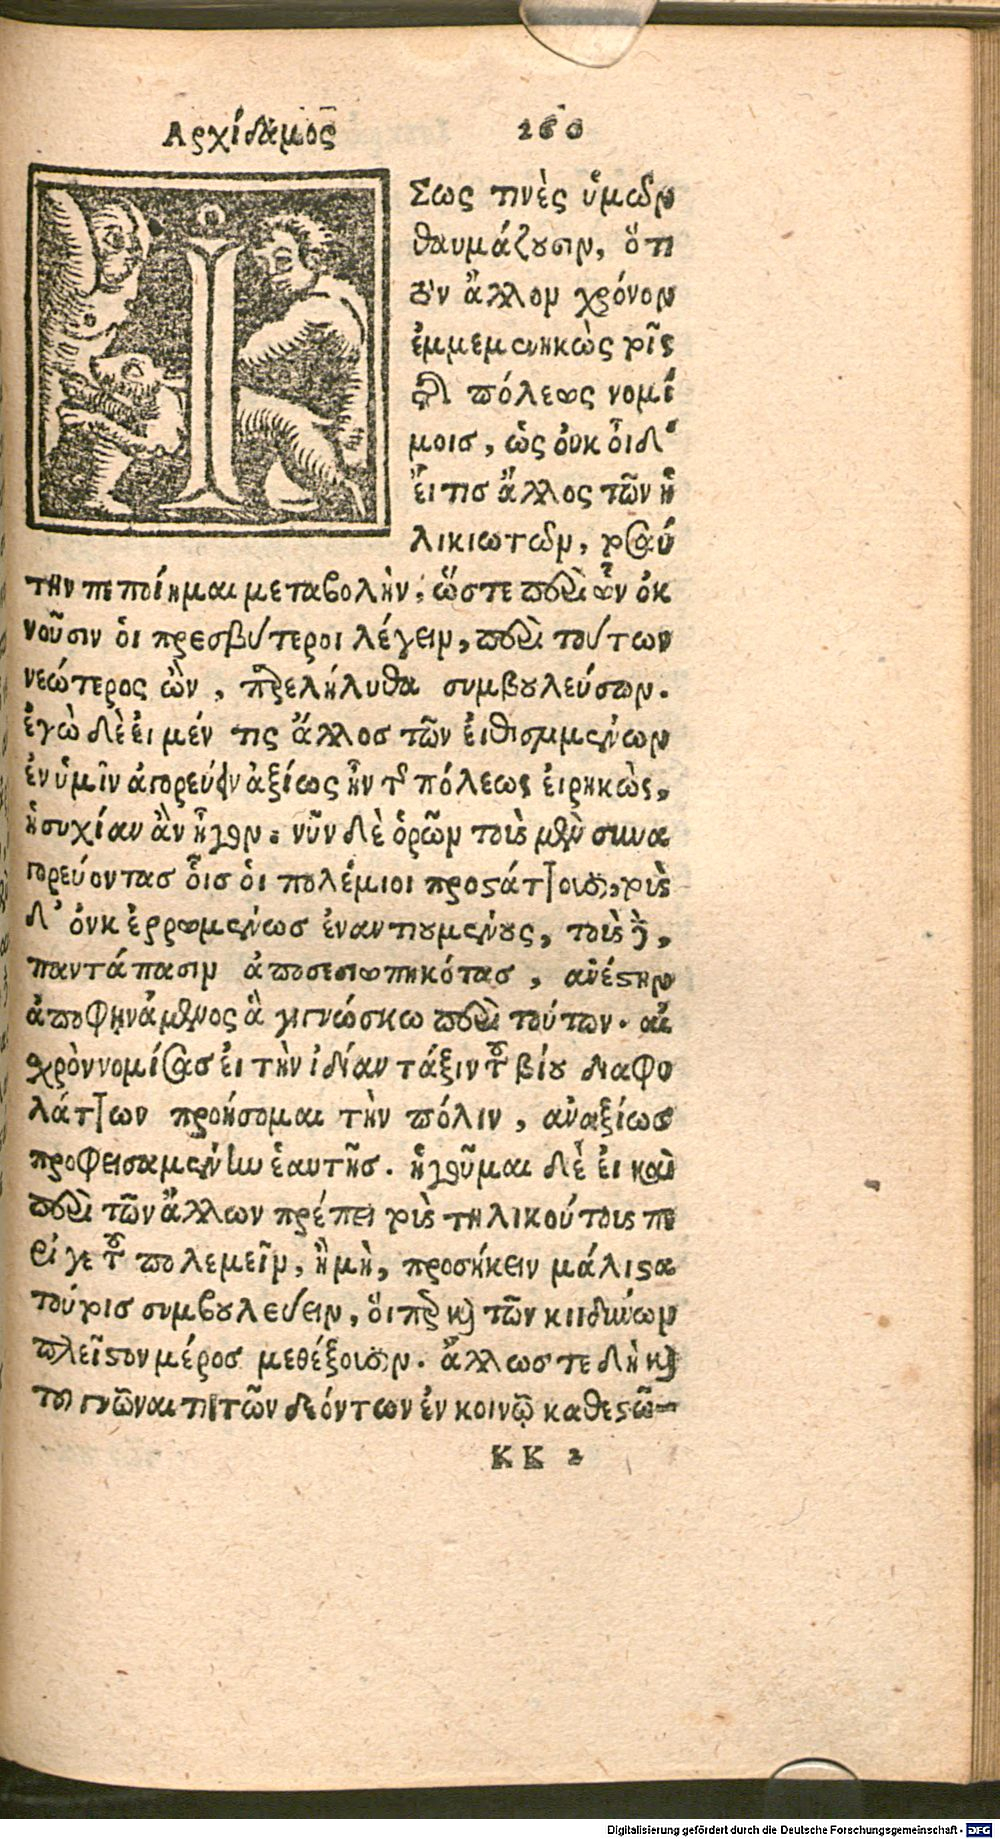 Αρχίδαμος 260
ΙΣως τινὲς ὑμῶν
θαυμάζουσιν, ὅτι
τὸν ἄλλον χρόνον
ἐμμεμενηκὼς τοῖς
τῆς πόλεως νομί
μοις, ὡς ὀυκ ὀῖδ᾽
ἔι τις ἄλλος τῶν ἡ
λικιωτῶν, τοσαύ
την πεποίημαι μεταβολὴν, ὥστε περὶ ὧν ὀκ
νοῦσιν ὁι πρεσβύτεροι λέγειν, περὶ τούτων
νεώτερος ὢν, παρελήλυθα συμβουλεύσων.
ἐγὼ δὲ ἐι μέν τις ἄλλος τῶν ἐιθισμμένων
ἐν ὑμῖν ἀγορεύειν ἀξίως ἦν τῆς πόλεως ἐιρηκὼς,
ἡσυχίαν ἂν ἦγον. νῦν δὲ ὁρῶν τοὺς μὲν συνα
γορεύοντας ὁῖς ὁι πολέμιοι προστάττουσι, τοὺς
δ᾽ ὀυκ ἐρρωμένως ἐναντιουμένους, τοὺς δὲ,
παντάπασιν ἀποσεσιωπηκότας, ανέστην
ἀποφηνάμενος ἃ γιγνώσκω περὶ τούτων. αἰ
χρὸν νομίσας ἐι τὴν ἰδίαν τάξιν τοῦ βίου διαφυ
λάττων προήσομαι τὴν πόλιν, αναξίως
προφεισαμένην ἑαυτῆς. ἡγοῦμαι δὲ ἐι καὶ
περὶ τῶν ἄλλων πρέπει τοὺς τηλικούτους πε
ρί γε τοῦ πολεμεῖν, ἢ μὴ, προσήκειν μάλιστα
τούτοις συμβουλεύειν, ὅιπερ καὶ τῶν κινδύνων
πλεῖστον μέρος μεθέξουσιν. ἄλλως τε δὴ καὶ
τοῦ γνῶναι τι τῶν δεόντων ἐν κοινῷ καθεστῶ-
KK 2
Digitalisierung gefördert durch die Deutsche Forschungsgemeinschaft - DFG